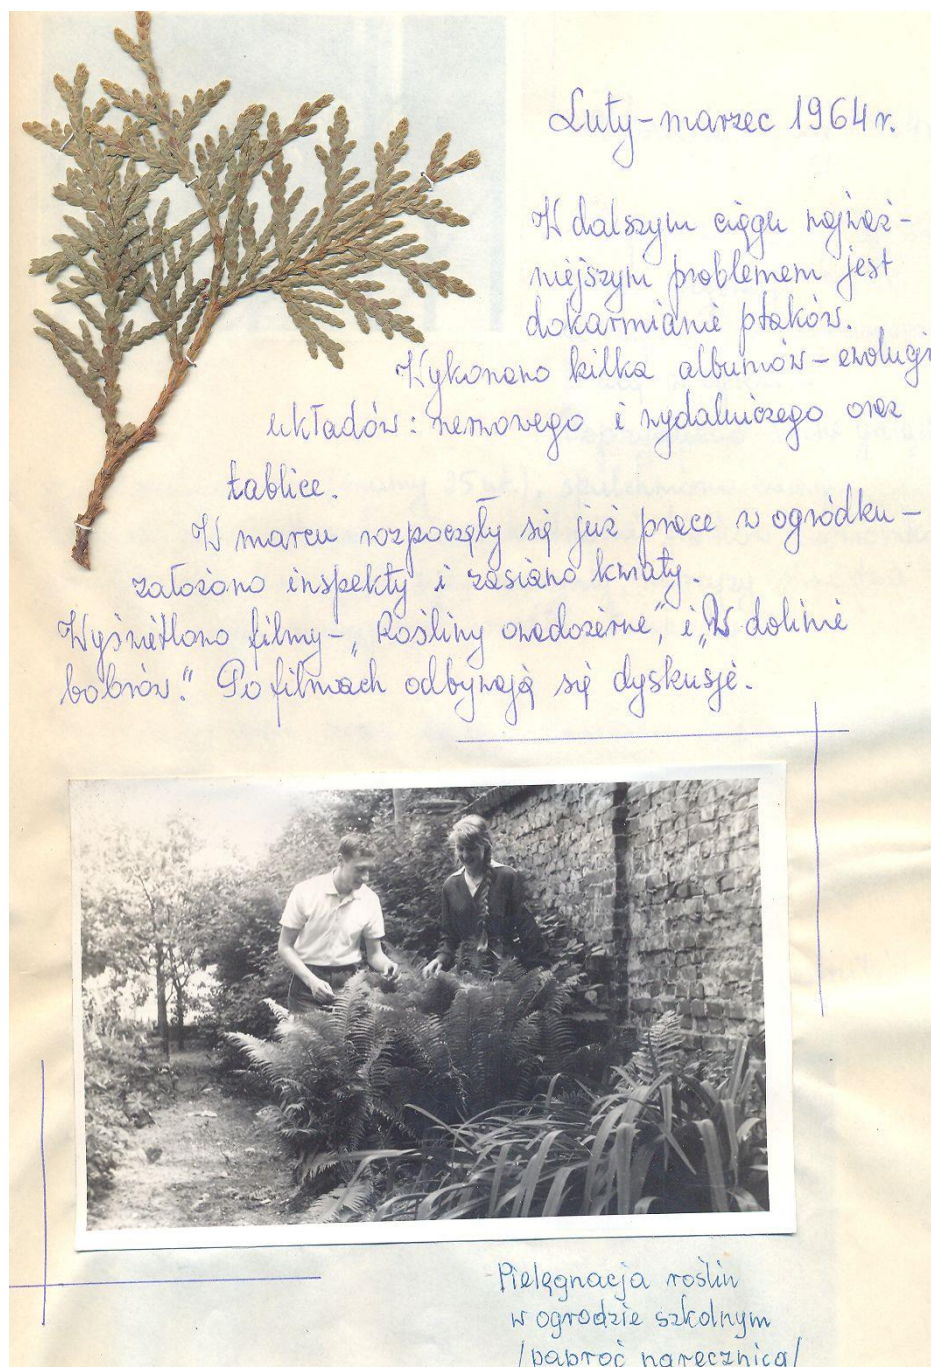 Luty-marzec 1964 r.
W dalszym ciągu najważ-
niejszym problemem jest
dokarmianie ptaków.
Wykonano kilka albumów – ewolucji
układów: nerwowego i wydalniczego oraz
tablice.
W marcu rozpoczęły się już prace w ogródku –
założono inspekty i zasiano kwiaty.
Wyświetlono filmy – „Rośliny owadożerne", i „W dolinie
bobrów." Po filmach odbywają się dyskusje.
Pielęgnacja roślin
w ogrodzie szkolnym
/paproć narecznica/